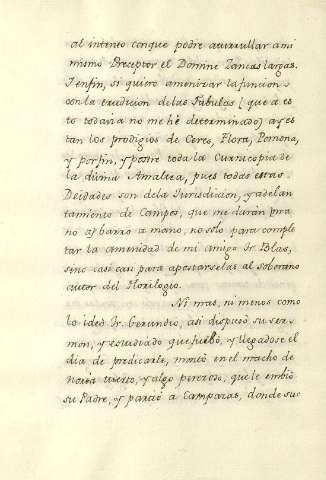 al intento con que podre aturrullar a mi
mismo Preceptor el Domine Zancas largas.
I enfin, si quiero amenizar la funcion
con la erudicion de las Fabulas (que a es
to todavia no me hè determinado) ay es
tan los prodigios de Ceres, Flora, Pomona,
y por fin, y postre toda la Cornucopia de
la divina Amaltea, pues todas estas
Deidades son de la Jurisdicion, y adelan
tamiento de Campos, que me daran pra
no a barro a mano, no sólo para comple
tar la amenidad de mi amigo Fr. Blas,
sino casi casi para apostarselas al soberano
autor del Florilogio.
Ni mas, ni menos como
lo ideó Fr. Gerundio, asi dispusó su ser-
mon, y estudiado que fue, y llegadose el
dia de predicarle, montó en el macho de
noria tuerto, y algo perezoso, que le embió
su Padre, y partió a Campazas, donde suc